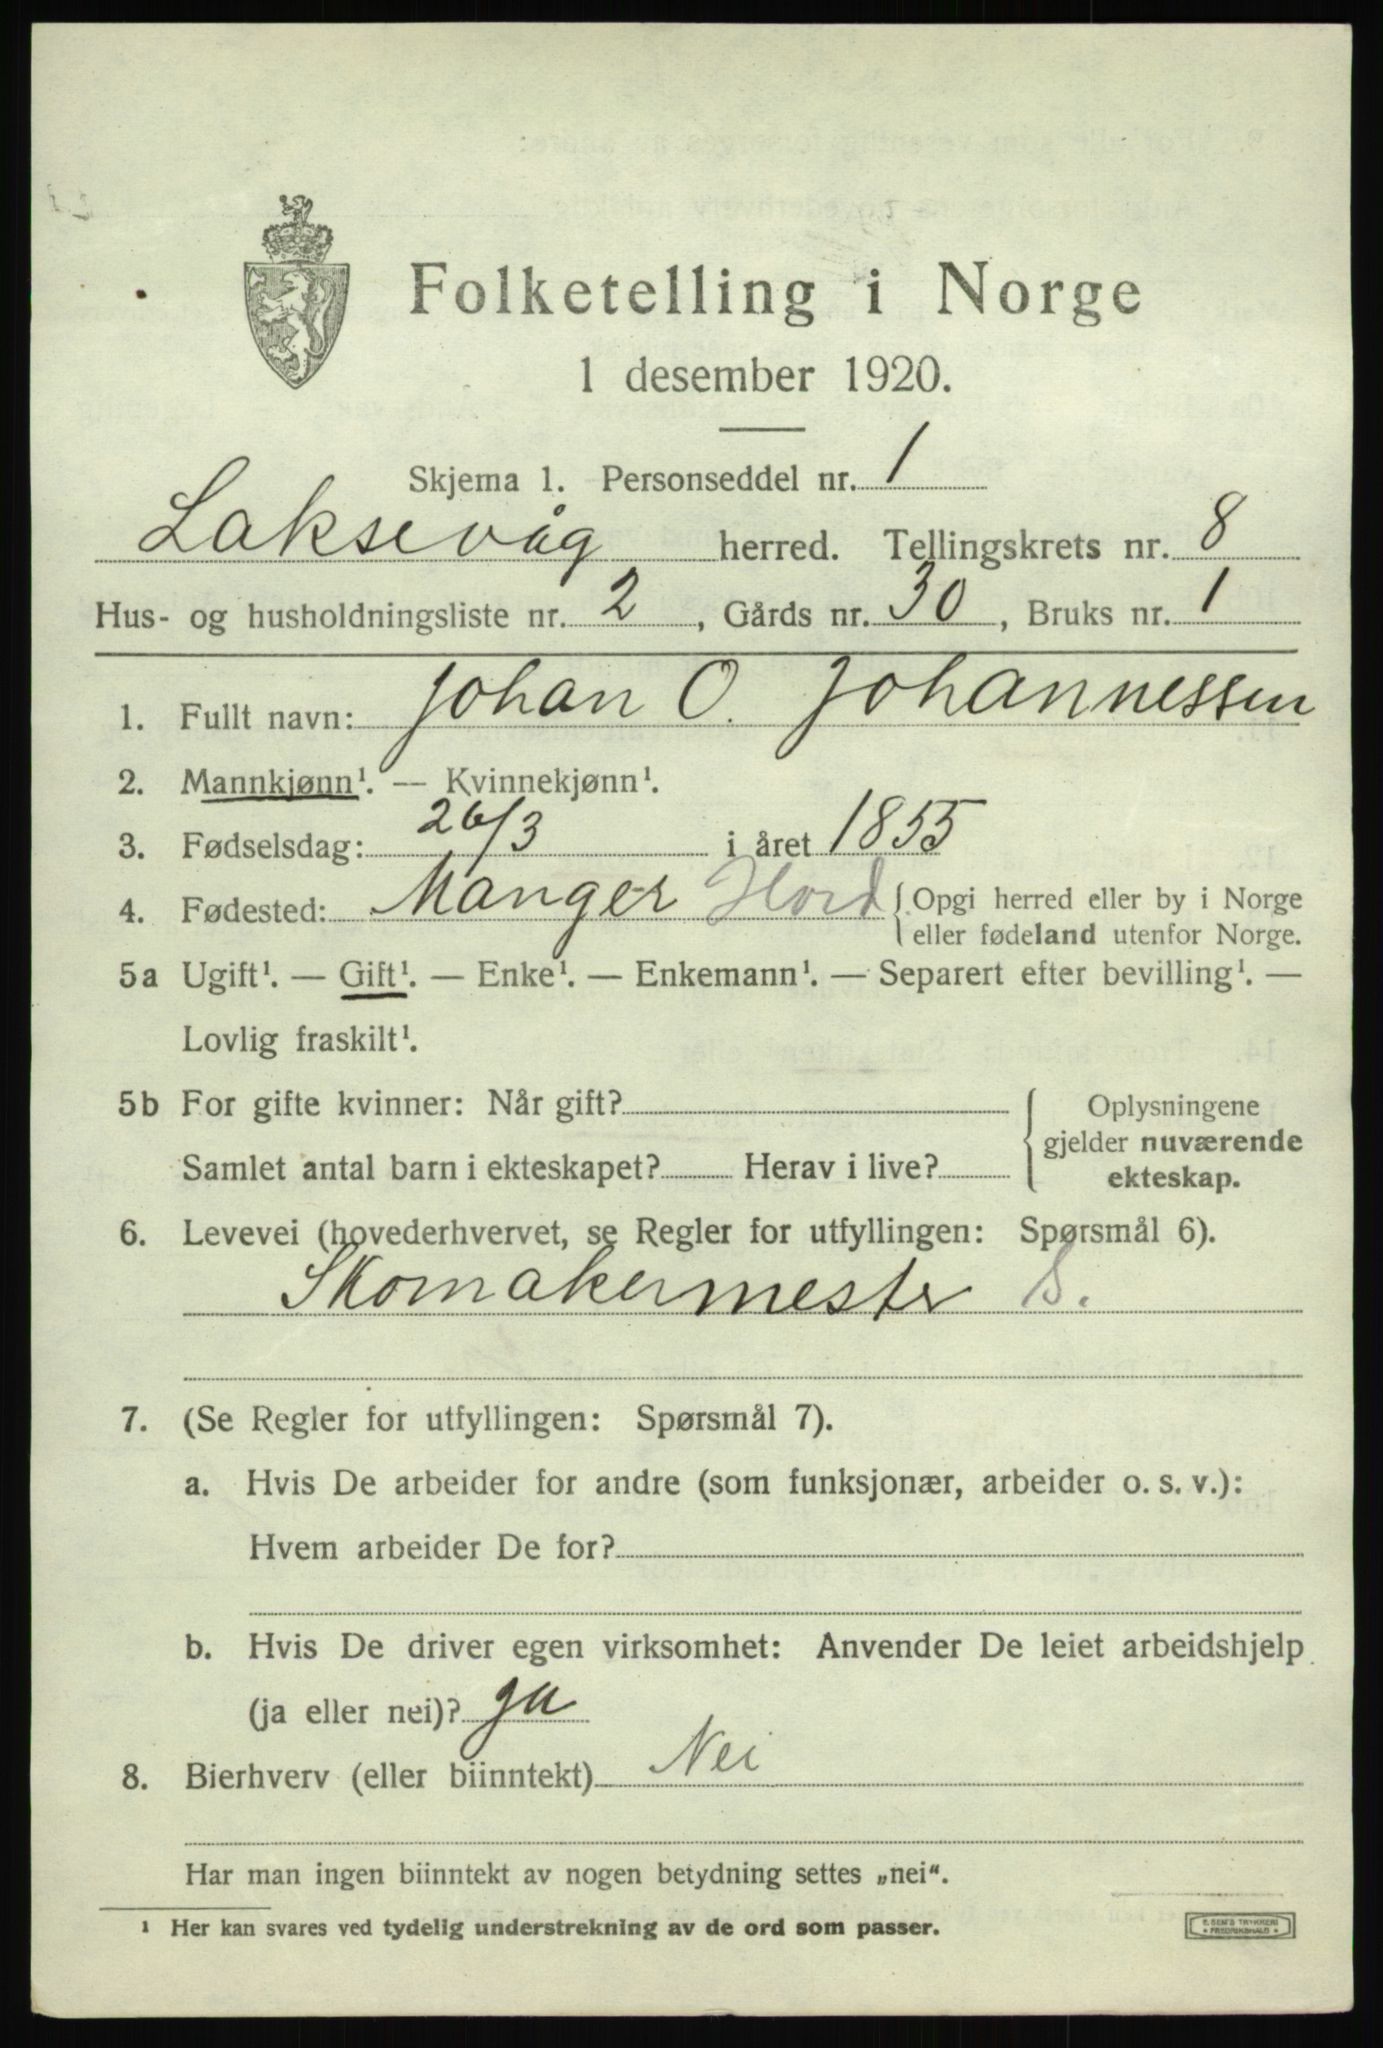 Folketelling i Norge
1 desember 1920.
Skjema 1. Personseddel nr. 1
Laksevåg herred. Tellingskrets nr. 8
Hus- og husholdningsliste nr. 2, Gårds nr. 30, Bruks nr. 1
1. Fullt navn: Johan O. Johannessen
2. Mannkjønn¹. — Kvinnekjønn¹.
3. Fødselsdag: 26/3 i året 1855
4. Fødested: Manger Hord { Opgi herred eller by i Norge
eller fødeland utenfor Norge.
5a Ugift¹. — Gift¹. — Enke¹. — Enkemann¹. — Separert efter bevilling¹. —
Lovlig fraskilt¹.
5b For gifte kvinner: Når gift?
Samlet antal barn i ekteskapet? Herav i live?
Oplysningene
gjelder nuværende
ekteskap.
6. Levevei (hovederhvervet, se Regler for utfyllingen: Spørsmål 6).
Skomakermester S.
7. (Se Regler for utfyllingen: Spørsmål 7).
a. Hvis De arbeider for andre (som funksjonær, arbeider o. s. v.):
Hvem arbeider De for?
b. Hvis De driver egen virksomhet: Anvender De leiet arbeidshjelp
(ja eller nei)? ja
8. Bierhverv (eller biinntekt) Nei
Har man ingen biinntekt av nogen betydning settes „nei“.
¹ Her kan svares ved tydelig understrekning av de ord som passer.
E. SEM'S TRYKKERI
FREDRIKSHALD